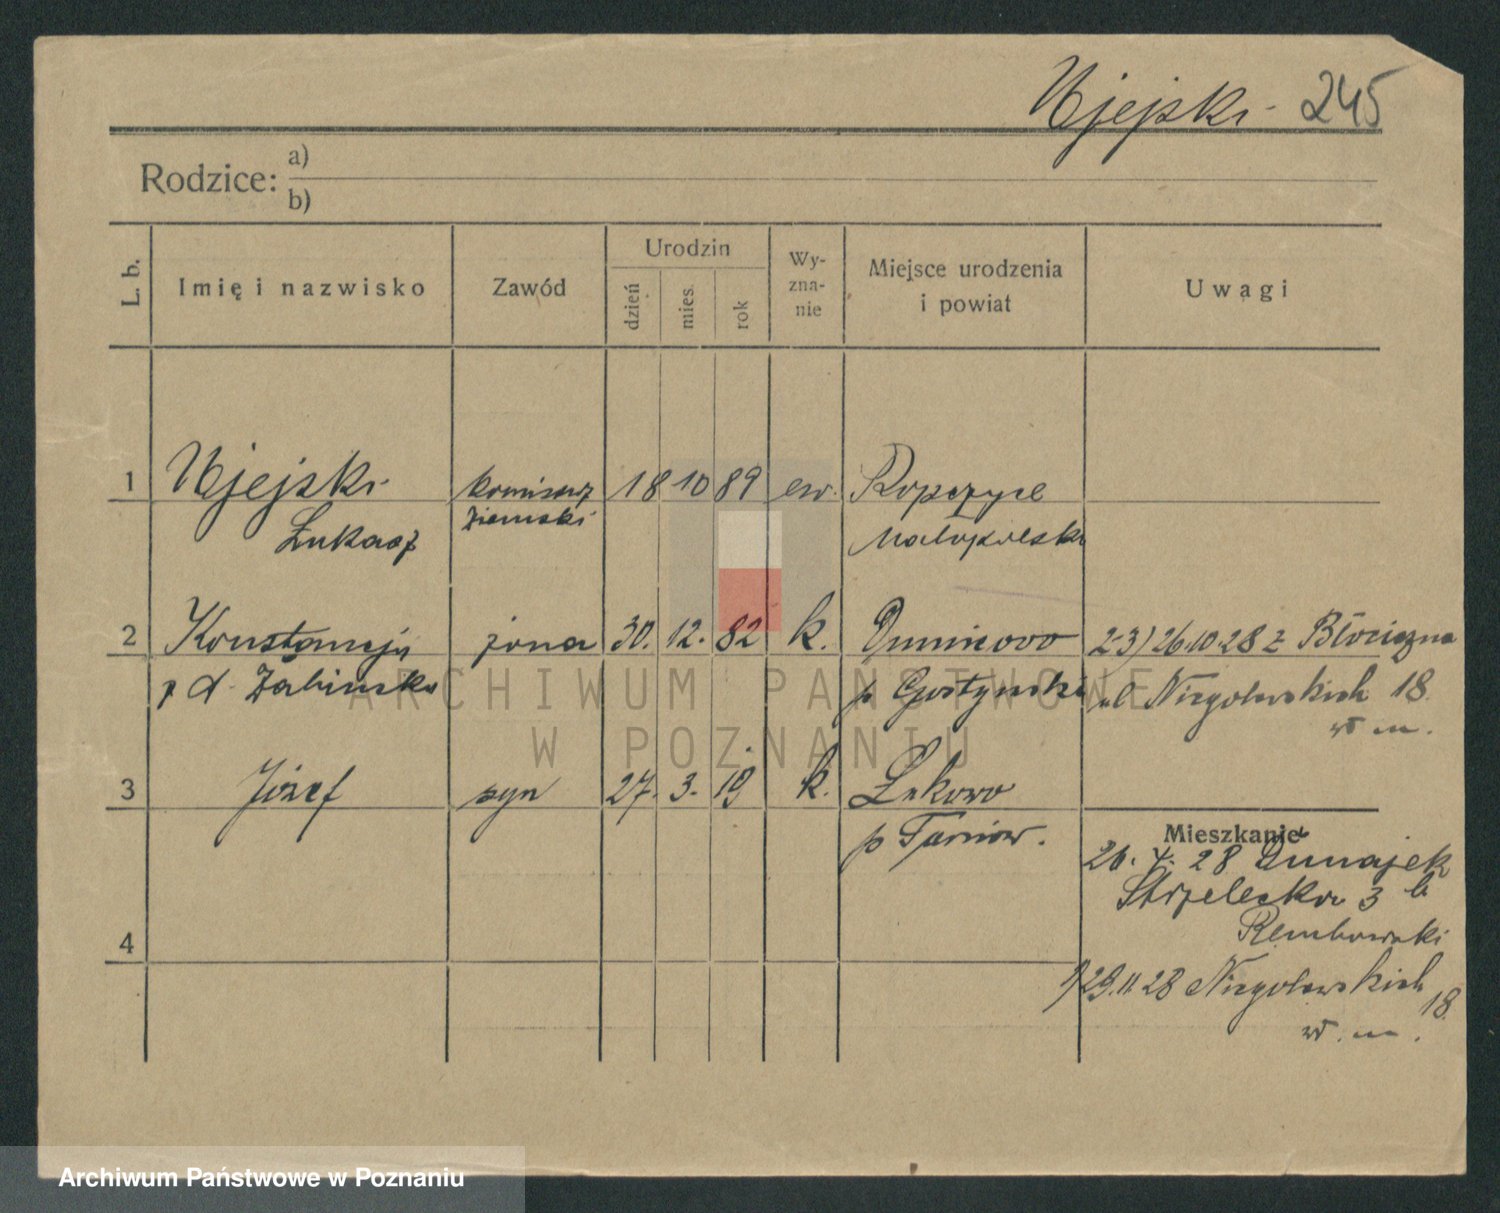 Ujejski 245
Rodzice: a)
b)
L. b.
Imię i nazwisko
Zawód
Urodzin
dzień
mies.
rok
Wy-
zna-
nie
Miejsce urodzenia
i powiat
Uwagi
1 Ujejski komisarz 18 10 89 ew. Ropczyce
Łukasz ziemski Małopolska
2 Konstancja żona 30. 12. 82 k.
2-3) 26.10.28 z Błociszna
z d. Żabińska p Gostyński
ul Niegolewskich 18.
w m.
3 Józef syn 27. 3. 19 k. Łukowo
p Tarnów.
Mieszkanie
26. 4. 28 Dunajek
Strzelecka 3 b
Rembowski
4
1) 29.11.28 Niegolewskich
18.
w. m.
ARCHIWUM PAŃSTWOWE
W POZNANIU
Archiwum Państwowe w Poznaniu